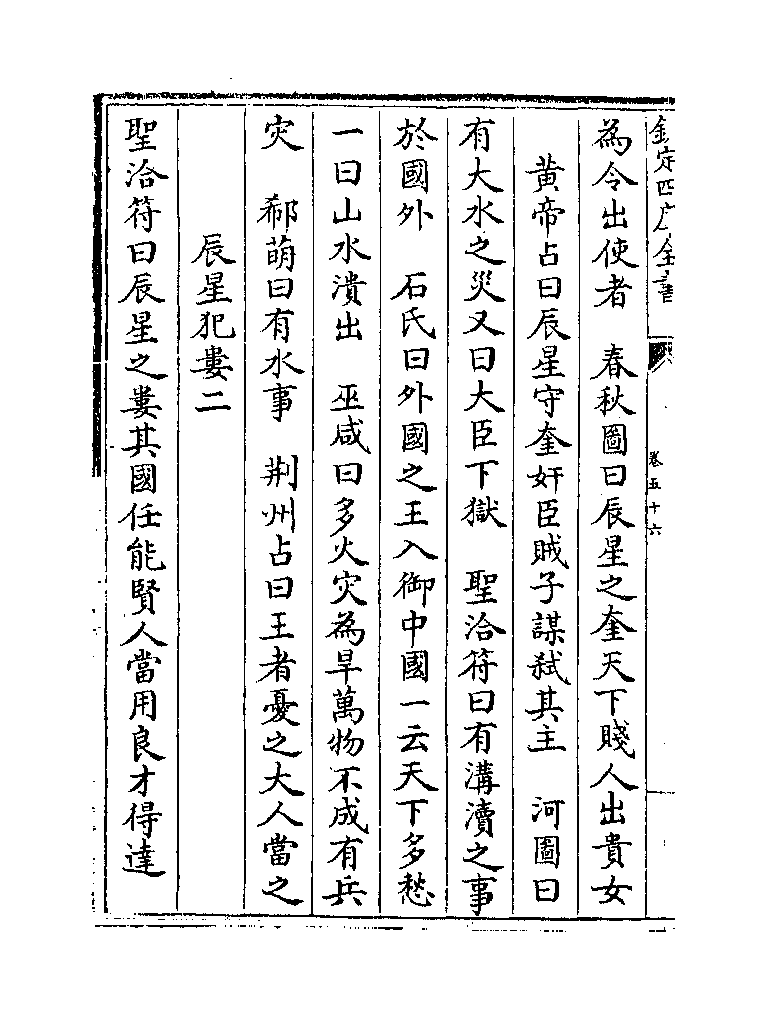 欽定四庫全書
卷五十六
為令出使者　春秋圖曰辰星之奎天下賤人出貴女
黄帝占曰辰星守奎奸臣賊子謀弑其主　河圖曰
有大水之災又曰大臣下獄　聖洽符曰有溝瀆之事
於國外　石氏曰外國之王入御中國一云天下多愁
一曰山水潰出　巫咸曰多火灾為旱萬物不成有兵
灾　郗萌曰有水事　荆州占曰王者憂之大人當之
辰星犯婁二
聖洽符曰辰星之婁其國任能賢人當用良才得達